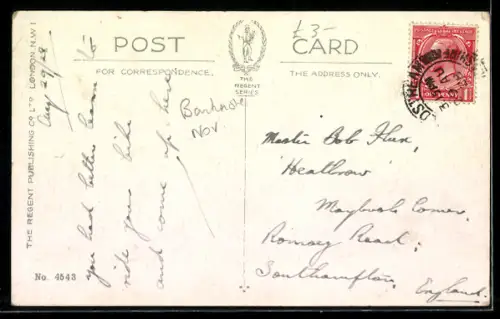 POST CARD
FOR CORRESPONDENCE.
THE ADDRESS ONLY.
THE
REGENT
SERIES
THE REGENT PUBLISHING CO LTD LONDON, N.W 1
No. 4543
£3-
Aug 29/28
to
you had better learn
ride your bike
and come up here
Nov.
Master Bob Flux,
"Heathrow"
Corner,
Romsey Road,
Southampton,
England.